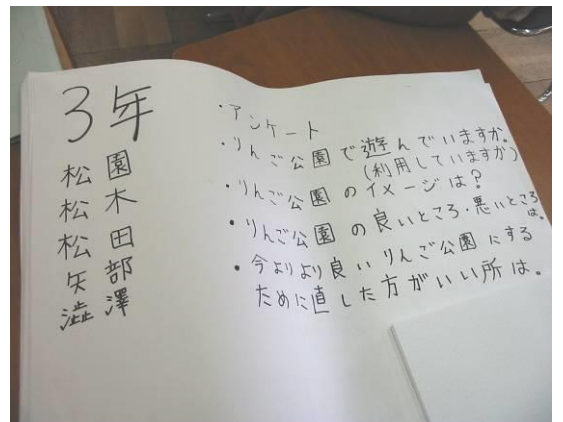 3年
松園
松木
松田
矢部
澁澤
・アンケート
・りんご公園で遊んでいますか。
(利用していますか)
・りんご公園のイメージは?
・りんご公園の良いところ・悪いところは。
・今よりより良いりんご公園にする
ために直した方がいい所は。